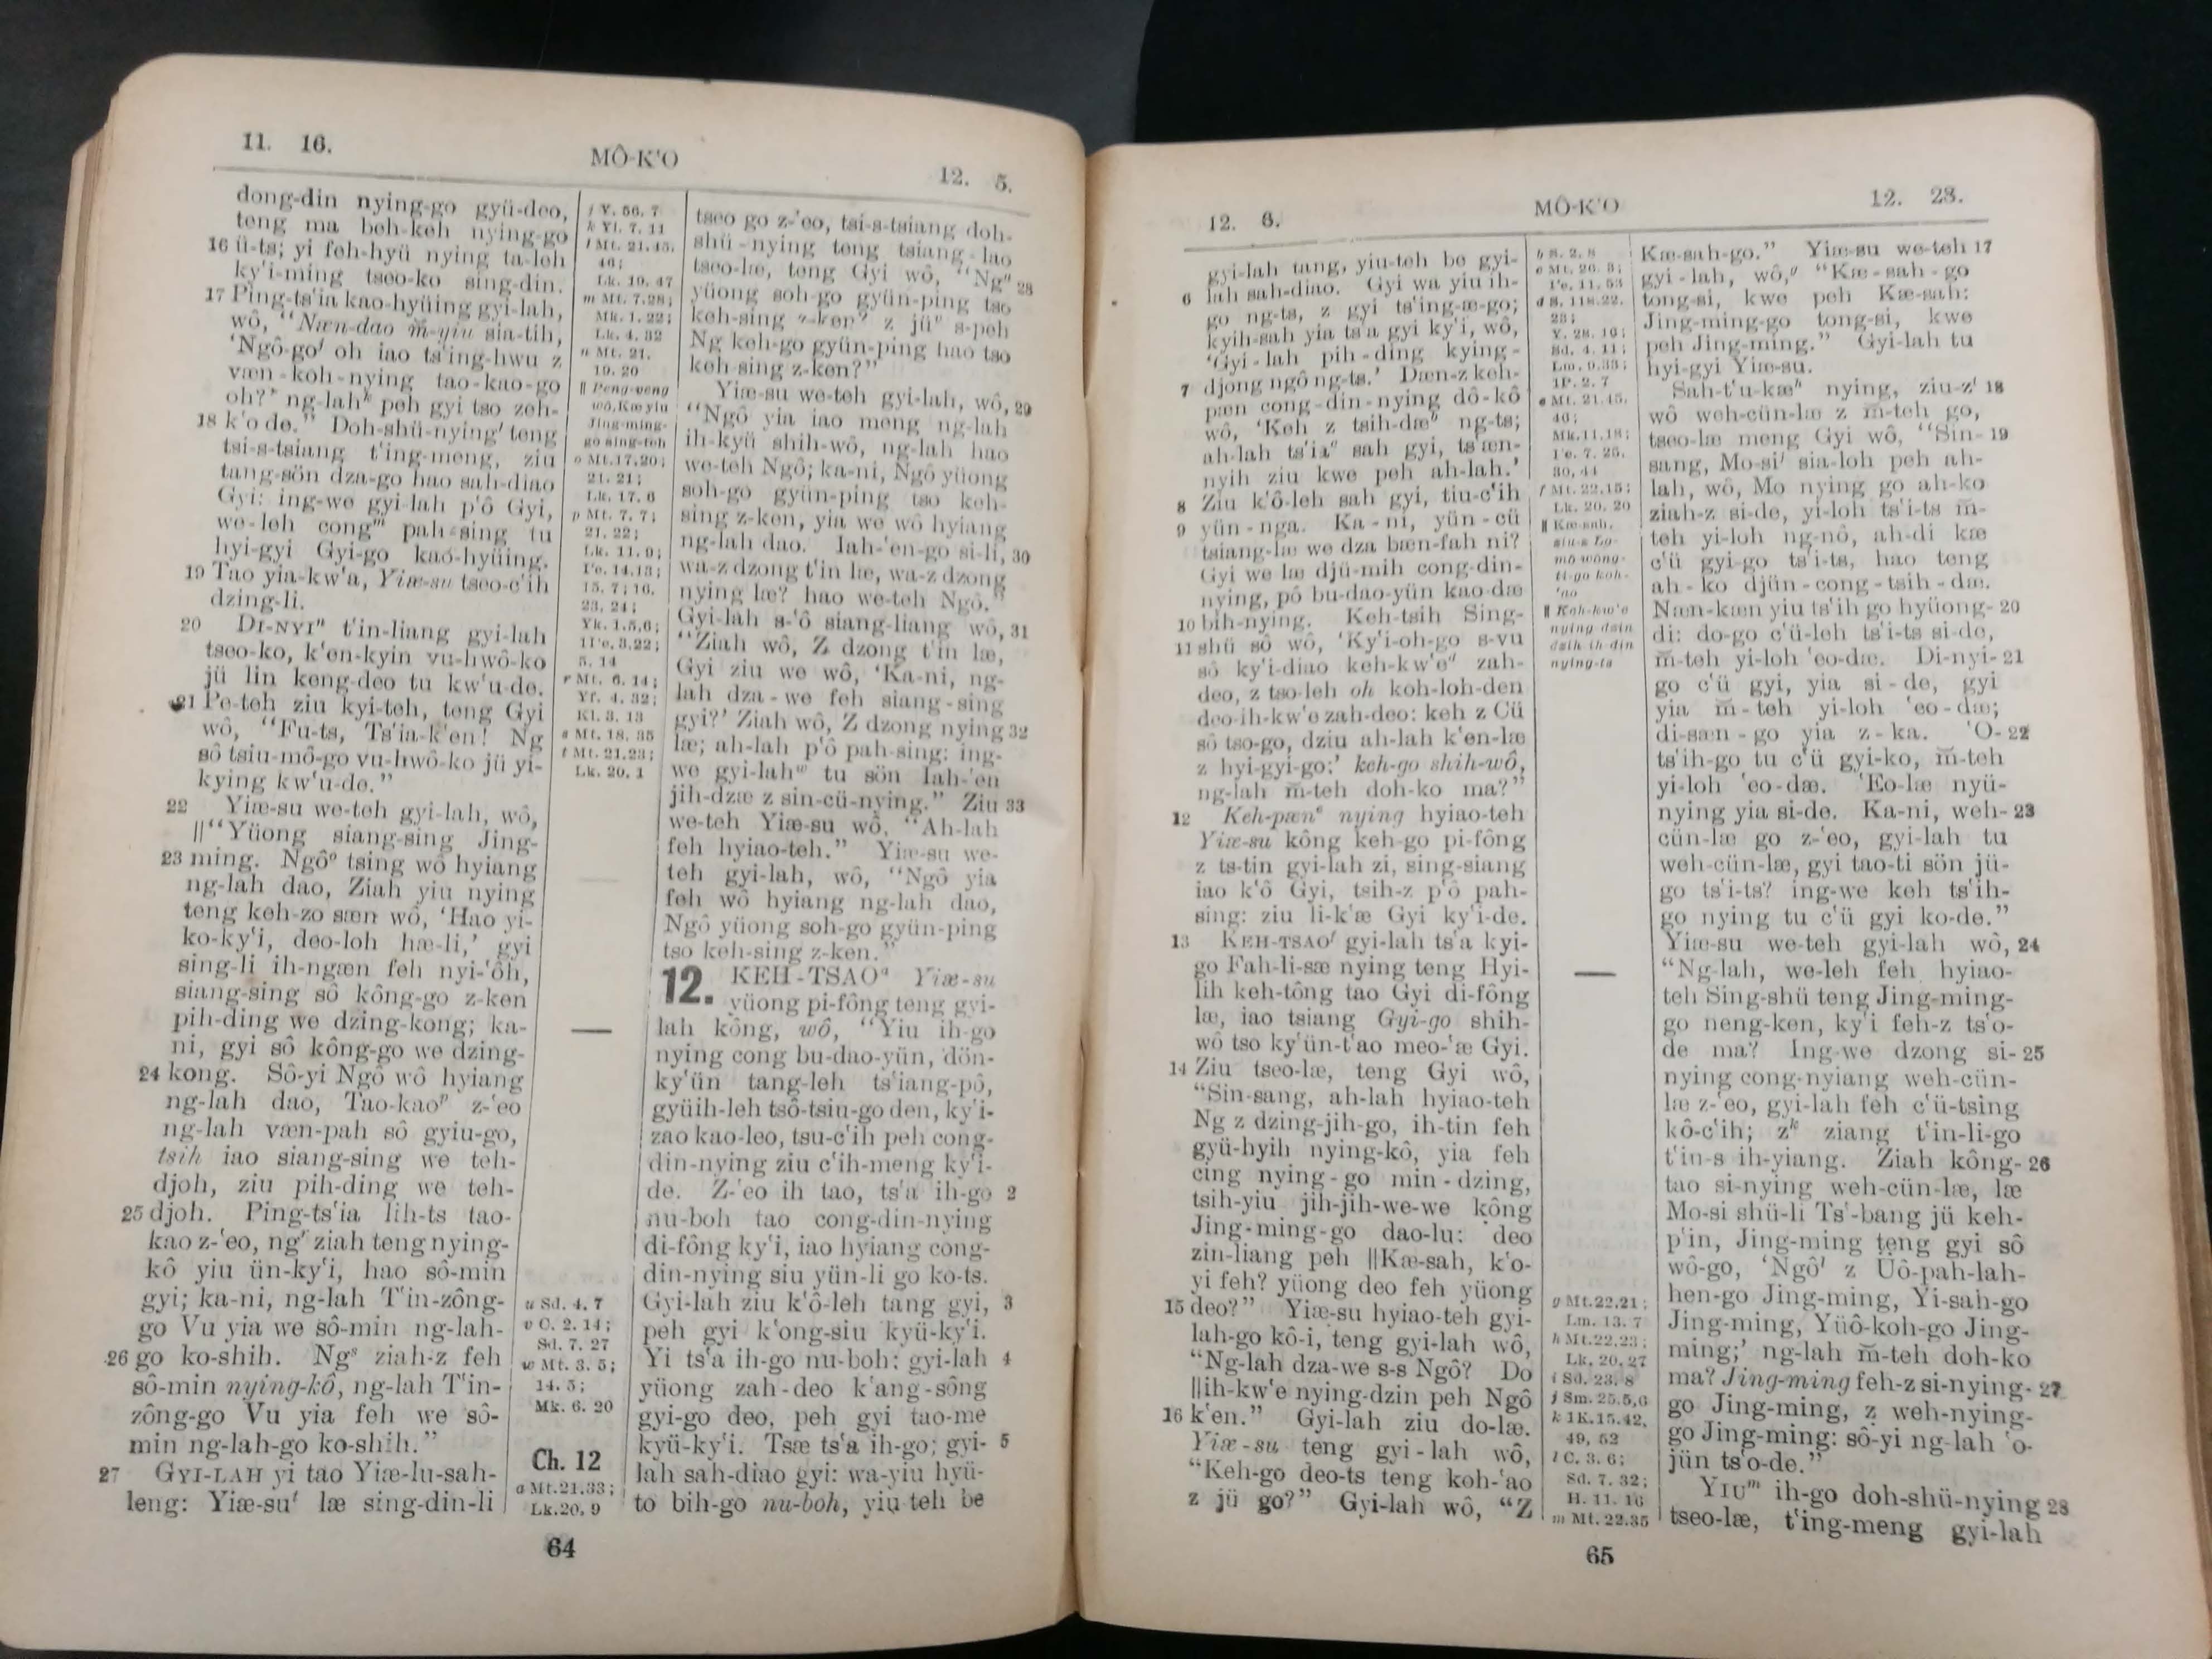 11. 16.
MÔ-K'O
12. 5.
dong-din nying-go gyü-deo,
teng ma beh-keh nying-go
16 ü-ts; yi feh-hyü nying ta-leh
ky'i-ming tseo-ko sing-din.
17 Ping-ts'ia kao-hyüing gyi-lah,
wô, “Næn-dao m̆-yiu sia-tih,
‘Ngô-goʲ oh iao ts'ing-hwu z
væn-koh-nying tao-kao-go
oh?’ ng-lahᵏ peh gyi tso zeh-
18 k'o de.” Doh-shü-nyingˡ teng
tsi-s-tsiang t'ing-meng, ziu
tang-sön dza-go hao sah-diao
Gyi: ing-we gyi-lah p'ô Gyi,
we-leh congᵐ pah-sing tu
hyi-gyi Gyi-go kao-hyüing.
19 Tao yia-kw'a, Yiæ-su tseo-c'ih
dzing-li.
20 DI-NYIⁿ t'in-liang gyi-lah
tseo-ko, k'en-kyin vu-hwô-ko
jü lin keng-deo tu kw'u-de.
21 Pe-teh ziu kyi-teh, teng Gyi
wô, “Fu-ts, Ts'ia-k'en! Ng
sô tsiu-mô-go vu-hwô-ko jü yi-
kying kw'u-de.”
22 Yiæ-su we-teh gyi-lah, wô,
||“Yüong siang-sing Jing-
23 ming. Ngôᵒ tsing wô hyiang
ng-lah dao, Ziah yiu nying
teng keh-zo sæn wô, ‘Hao yi-
ko-ky'i, deo-loh hæ-li,’ gyi
sing-li ih-ngæn feh nyi-'ôh,
siang-sing sô kông-go z-ken
pih-ding we dzing-kong; ka-
ni, gyi sô kông-go we dzing-
24 kong. Sô-yi Ngô wô hyiang
ng-lah dao, Tao-kaoᵖ z-'eo
ng-lah væn-pah sô gyiu-go,
tsih iao siang-sing we teh-
djoh, ziu pih-ding we teh-
25 djoh. Ping-ts'ia lih-ts tao-
kao z-'eo, ngʳ ziah teng nying-
kô yiu ün-ky'i, hao sô-min
gyi; ka-ni, ng-lah T'in-zông-
go Vu yia we sô-min ng-lah-
26 go ko-shih. Ngˢ ziah-z feh
sô-min nying-kô, ng-lah T'in-
zông-go Vu yia feh we sô-
min ng-lah-go ko-shih.”
27 GYI-LAH yi tao Yiæ-lu-sah-
leng: Yiæ-suᵗ læ sing-din-li
j Y. 56. 7
k Yl. 7. 11
l Mt. 21.45,
46;
Lk. 19. 47
m Mt. 7.28;
Mk. 1. 22;
Lk. 4. 32
n Mt. 21.
19. 20
|| Peng-veng
wô, Kæ yiu
Jing-ming-
go sing-teh
o Mt.17.20;
21. 21;
Lk. 17. 6
p Mt. 7. 7;
21. 22;
Lk. 11. 9;
I'o. 14.13;
15. 7; 16.
23, 24;
Yk. 1.5,6;
1I'o. 3.22;
5. 14
r Mt. 6. 14;
Yf. 4. 32;
Kl. 3. 13
s Mt. 18. 35
t Mt. 21.23;
Lk. 20. 1
u Sd. 4. 7
v C. 2. 14;
Sd. 7. 27
w Mt. 3. 5;
14. 5;
Mk. 6. 20
Ch. 12
a Mt.21.33;
Lk.20. 9
tseo go z-'eo, tsi-s-tsiang doh-
shü-nying teng tsiang-lao
tseo-læ, teng Gyi wô, “Ngᵘ 28
yüong soh-go gyün-ping tso
keh-sing z-ken? z jüᵛ s-peh
Ng keh-go gyün-ping hao tso
keh-sing z-ken?”
Yiæ-su we-teh gyi-lah, wô, 29
“Ngô yia iao meng ng-lah
ih-kyü shih-wô, ng-lah hao
we-teh Ngô; ka-ni, Ngô yüong
soh-go gyün-ping tso keh-
sing z-ken, yia we wô hyiang
ng-lah dao. Iah-'en-go si-li, 30
wa-z dzong t'in læ, wa-z dzong
nying læ? hao we-teh Ngô.”
Gyi-lah s-'ô siang-liang wô, 31
“Ziah wô, Z dzong t'in læ,
Gyi ziu we wô, ‘Ka-ni, ng-
lah dza-we feh siang-sing
gyi?’ Ziah wô, Z dzong nying 32
læ; ah-lah p'ô pah-sing: ing-
we gyi-lahʷ tu sön Iah-'en
jih-dzæ z sin-cü-nying.” Ziu 33
we-teh Yiæ-su wô, “Ah-lah
feh hyiao-teh.” Yiæ-su we-
teh gyi-lah, wô, “Ngô yia
feh wô hyiang ng-lah dao,
Ngô yüong soh-go gyün-ping
tso keh-sing z-ken.”
12. KEH-TSAOᵃ Yiæ-su
yüong pi-fông teng gyi-
lah kông, wô, “Yiu ih-go
nying cong bu-dao-yün, dön-
ky'ün tang-leh ts'iang-pô,
gyüih-leh tsô-tsiu-go den, ky'i-
zao kao-leo, tsu-c'ih peh cong-
din-nying ziu c'ih-meng ky'i-
de. Z-'eo ih tao, ts'a ih-go 2
nu-boh tao cong-din-nying
di-fông ky'i, iao hyiang cong-
din-nying siu yün-li go ko-ts.
Gyi-lah ziu k'ô-leh tang gyi, 3
peh gyi k'ong-siu kyü-ky'i.
Yi ts'a ih-go nu-boh: gyi-lah 4
yüong zah-deo k'ang-sông
gyi-go deo, peh gyi tao-me
kyü-ky'i. Tsæ ts'a ih-go; gyi- 5
lah sah-diao gyi: wa-yiu hyü-
to bih-go nu-boh, yiu-teh be
64
12. 6.
MÔ-K'O
12. 23.
gyi-lah tang, yiu-teh be gyi-
6 lah sah-diao. Gyi wa yiu ih-
go ng-ts, z gyi ts'ing-æ-go;
kyih-sah yia ts'a gyi ky'i, wô,
‘Gyi-lah pih-ding kying-
7 djong ngô ng-ts.’ Dæn-z keh-
pæn cong-din-nying dô-kô
wô, ‘Keh z tsih-dæᵇ ng-ts;
ah-lah ts'iaᶜ sah gyi, ts'æn-
nyih ziu kwe peh ah-lah.’
8 Ziu k'ô-leh sah gyi, tiu-c'ih
9 yün-nga. Ka-ni, yün-cü
tsiang-læ we dza bæn-fah ni?
Gyi we læ djü-mih cong-din-
nying, pô bu-dao-yün kao-dæ
10 bih-nying. Keh-tsih Sing-
11 shü sô wô, ‘Ky'i-oh-go s-vu
sô ky'i-diao keh-kw'eᵈ zah-
deo, z tso-leh oh koh-loh-den
deo-ih-kw'e zah-deo: keh z Cü
sô tso-go, dziu ah-lah k'en-læ
z hyi-gyi-go:’ keh-go shih-wô,
ng-lah m̆-teh doh-ko ma?”
12 Keh-pænᵉ nying hyiao-teh
Yiæ-su kông keh-go pi-fông
z ts-tin gyi-lah zi, sing-siang
iao k'ô Gyi, tsih-z p'ô pah-
sing: ziu li-k'æ Gyi ky'i-de.
13 KEH-TSAOᶠ gyi-lah ts'a kyi-
go Fah-li-sæ nying teng Hyi-
lih keh-tông tao Gyi di-fông
læ, iao tsiang Gyi-go shih-
wô tso ky'ün-t'ao meo-'æ Gyi.
14 Ziu tseo-læ, teng Gyi wô,
“Sin-sang, ah-lah hyiao-teh
Ng z dzing-jih-go, ih-tin feh
gyü-hyih nying-kô, yia feh
cing nying-go min-dzing,
tsih-yiu jih-jih-we-we kông
Jing-ming-go dao-lu: deo
zin-liang peh ||Kæ-sah, k'o-
yi feh? yüong deo feh yüong
15 deo?” Yiæ-su hyiao-teh gyi-
lah-go kô-i, teng gyi-lah wô,
“Ng-lah dza-we s-s Ngô? Do
||ih-kw'e nying-dzin peh Ngô
16 k'en.” Gyi-lah ziu do-læ.
Yiæ-su teng gyi-lah wô,
“Keh-go deo-ts teng koh-'ao
z jü go?” Gyi-lah wô, “Z
b S. 2. 8
c Mt. 26. 3;
I'o. 11. 53
d S. 118.22,
23;
Y. 28. 16;
Sd. 4. 11;
Lm. 9.33;
1P. 2. 7
e Mt. 21.45,
46;
Mk.11.18;
I'o. 7. 25,
30, 44
f Mt. 22.15;
Lk. 20. 20
|| Kæ-sah,
ziu-s Lo-
mô wông-
ti-go koh-
'ao
|| Koh-kw'e
nying-dzin
dzih ih-din
nying-ts
g Mt.22.21;
Lm. 13. 7
h Mt.22.23;
Lk. 20. 27
i Sd. 23. 8
j Sm. 25.5,6
k 1K.15.42,
49, 52
l C. 3. 6;
Sd. 7. 32;
H. 11. 16
m Mt. 22.35
Kæ-sah-go.” Yiæ-su we-teh 17
gyi-lah, wô,ᵍ “Kæ-sah-go
tong-si, kwe peh Kæ-sah:
Jing-ming-go tong-si, kwe
peh Jing-ming.” Gyi-lah tu
hyi-gyi Yiæ-su.
Sah-t'u-kæʰ nying, ziu-zⁱ 18
wô weh-cün-læ z m̆-teh go,
tseo-læ meng Gyi wô, “Sin- 19
sang, Mo-siʲ sia-loh peh ah-
lah, wô, Mo nying go ah-ko
ziah-z si-de, yi-loh ts'i-ts m̆-
teh yi-loh ng-nô, ah-di kæ
c'ü gyi-go ts'i-ts, hao teng
ah-ko djün-cong-tsih-dæ.
Næn-kæn yiu ts'ih go hyüong- 20
di: do-go c'ü-leh ts'i-ts si-de,
m̆-teh yi-loh 'eo-dæ. Di-nyi- 21
go c'ü gyi, yia si-de, gyi
yia m̆-teh yi-loh 'eo-dæ;
di-sæn-go yia z-ka. 'O- 22
ts'ih-go tu c'ü gyi-ko, m̆-teh
yi-loh 'eo-dæ. 'Eo-læ nyü-
nying yia si-de. Ka-ni, weh- 23
cün-læ go z-'eo, gyi-lah tu
weh-cün-læ, gyi tao-ti sön jü-
go ts'i-ts? ing-we keh ts'ih-
go nying tu c'ü gyi ko-de.”
Yiæ-su we-teh gyi-lah wô, 24
“Ng-lah, we-leh feh hyiao-
teh Sing-shü teng Jing-ming-
go neng-ken, ky'i feh-z ts'o-
de ma? Ing-we dzong si- 25
nying cong-nyiang weh-cün-
læ z-'eo, gyi-lah feh c'ü-tsing
kô-c'ih; zᵏ ziang t'in-li-go
t'in-s ih-yiang. Ziah kông- 26
tao si-nying weh-cün-læ, læ
Mo-si shü-li Ts'-bang jü keh-
p'in, Jing-ming teng gyi sô
wô-go, ‘Ngôˡ z Üô-pah-lah-
hen-go Jing-ming, Yi-sah-go
Jing-ming, Yüô-koh-go Jing-
ming;’ ng-lah m̆-teh doh-ko
ma? Jing-ming feh-z si-nying- 27
go Jing-ming, z weh-nying-
go Jing-ming: sô-yi ng-lah 'o-
jün ts'o-de.”
YIUᵐ ih-go doh-shü-nying 28
tseo-læ, t'ing-meng gyi-lah
65